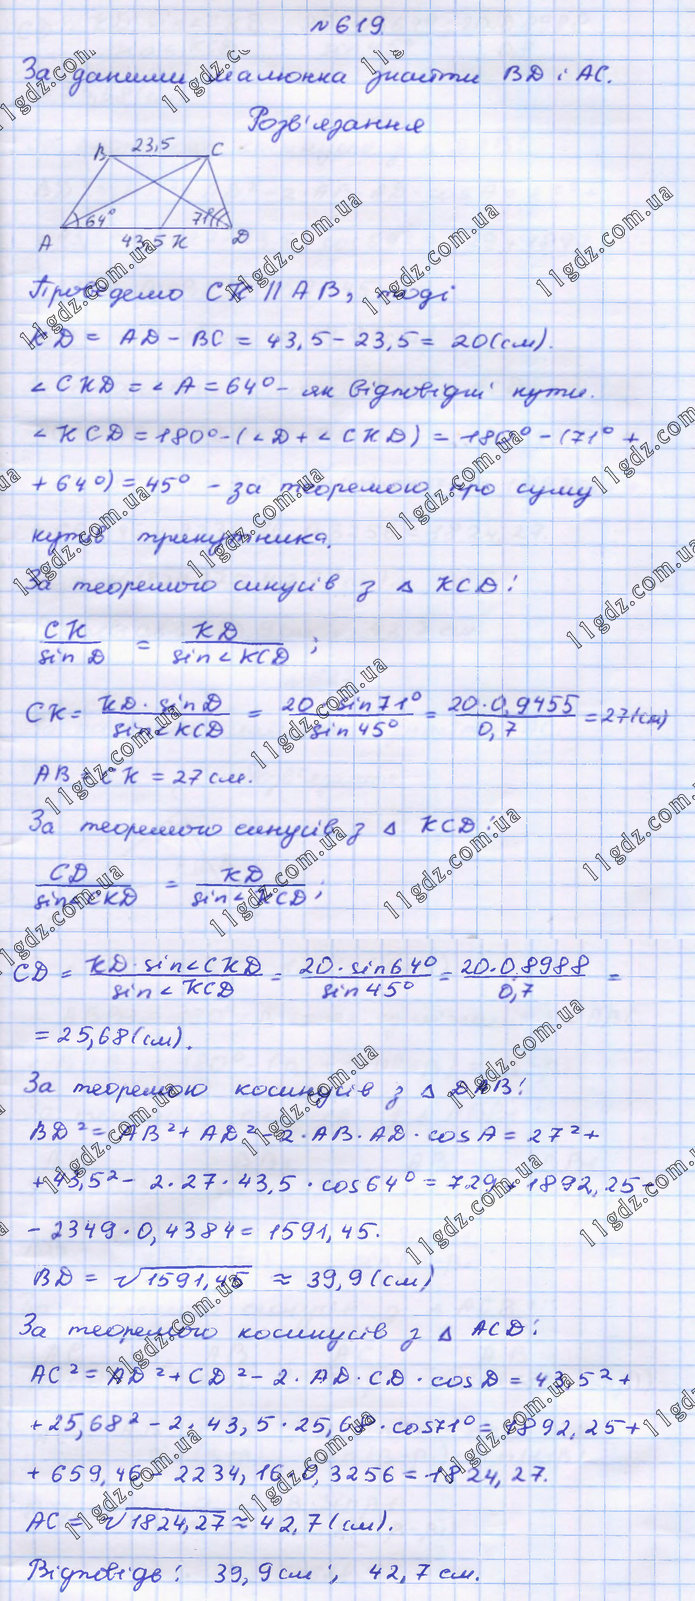 №619
За даними малюнка знайти BD і AC.
Розв'язання
B 23,5 C
64° 71°
A 43,5 K D
Проведемо CK || AB, тоді
KD = AD - BC = 43,5 - 23,5 = 20(см).
∠CKD = ∠A = 64° - як відповідні кути.
∠KCD = 180° - (∠D + ∠CKD) = 180° - (71° +
+ 64°) = 45° - за теоремою про суму
кутів трикутника.
За теоремою синусів з △ KCD:
CK / sin D = KD / sin∠KCD ;
CK = KD · sin D / sin∠KCD = 20 · sin71° / sin45° = 20·0,9455 / 0,7 = 27(см)
AB = CK = 27 см.
За теоремою синусів з △ KCD:
CD / sin∠CKD = KD / sin∠KCD ;
CD = KD · sin∠CKD / sin∠KCD = 20 · sin64° / sin45° = 20·0,8988 / 0,7 =
= 25,68(см).
За теоремою косинусів з △ DAB:
BD² = AB² + AD² - 2 · AB · AD · cos A = 27² +
+ 43,5² - 2 · 27 · 43,5 · cos64° = 729 + 1892,25 -
- 2349 · 0,4384 = 1591,45.
BD = √1591,45 ≈ 39,9(см)
За теоремою косинусів з △ ACD:
AC² = AD² + CD² - 2 · AD · CD · cos D = 43,5² +
+ 25,68² - 2 · 43,5 · 25,68 · cos71° = 1892,25 +
+ 659,46 - 2234,16 · 0,3256 = 1824,27.
AC = √1824,27 ≈ 42,7(см).
Відповідь: 39,9 см ; 42,7 см.
11gdz.com.ua